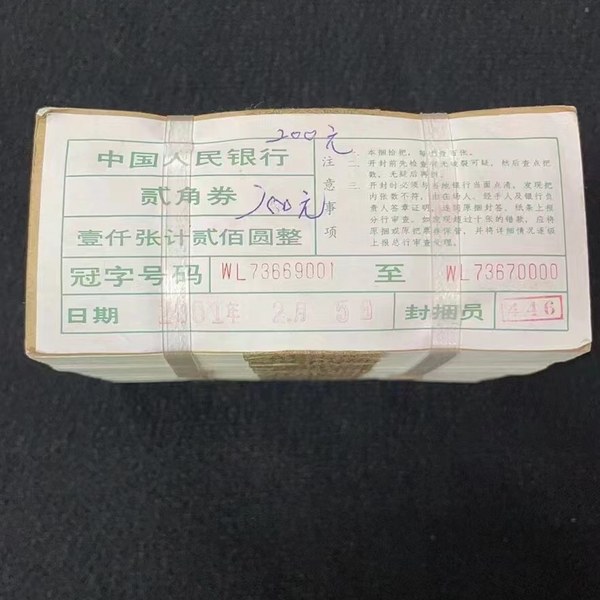 200元
中国人民银行
贰角券
300元
壹仟张计贰佰圆整
注意事项
一、本捆拾把，每把壹百张。
二、开封前先检查有无破裂可疑，然后查点把数，无疑后再拆。
三、开封时必须与当地银行当面点清，发现把
内张数不符，由在场人、经手人及银行负
责人签章证明，连同原捆封签、纸条上报
分行审查。如发现超过十张的错款，应将
原捆或原把票币保管，并将详细情况逐级
上报总行审查处理。
冠字号码 WL73669001 至 WL73670000
日期 年 2月 5日 封捆员 446